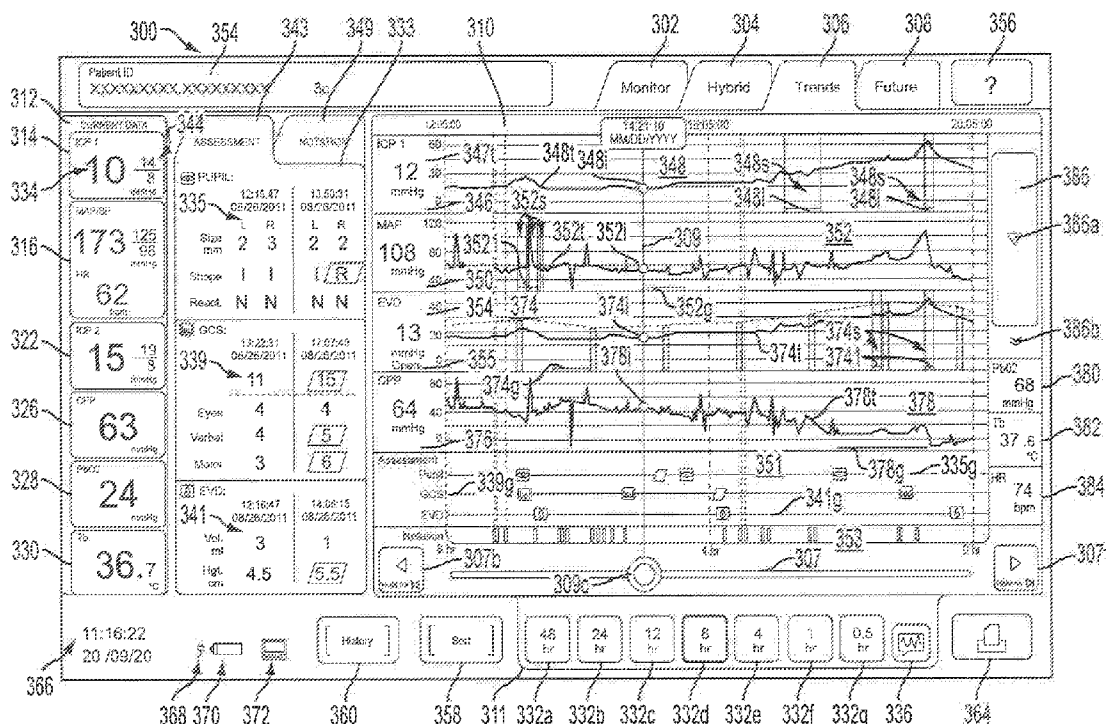 300
354
343
349
333
310
302
304
306
308
356
Patient ID
XXXXXXXX.XXXXXXXXX
Monitor
Hybrid
Trends
Future
?
312
CURRENT DATA
344
314
ICP 1
10 14/8
mmHg
334
316
MAP/BP
173 125/96
mmHg
HR
62
bpm
322
ICP 2
15 19/8
mmHg
326
CPP
63
mmHg
328
24
mmHg
330
Tb
36.7
°C
ASSESSMENT
NOTATION
PUPIL:
335
12:16:47 13:50:31
08/26/2011 08/26/2011
L R L R
Size mm 2 3 2 2
Shape I I I R
React. N N N N
GCS:
339
08/26/2011 08/26/2011
11 15
Eyes 4 4
Verbal 4 5
Motor 3 6
EVD:
341
12:16:47 14:06:15
08/26/2011 08/26/2011
Vol. ml 3 1
Hgt. cm 4.5 5.5
14:21:10
MM/DD/YYYY
ICP 1
12
mmHg
347t
348t
348i
348
348s
348s
348l
348l
346
352s
MAP
108
mmHg
352l
352t
352i
309
352
350
352g
EVD
13
mmHg
Open
354
374
374i
374s
374l
374t
355
374g
378i
CPP
64
mmHg
378t
378
376
378g
335g
Assessment
Pupil
351
GCS
339g
EVD
341g
Notation
353
8 hr
4 hr
0 hr
307b
309c
307
307
386
386a
386b
PbO2
68
mmHg
380
Tb
37.6
°C
382
HR
74
bpm
384
11:16:22
20 /09/20
366
History
48 hr
24 hr
12 hr
8 hr
4 hr
1 hr
0.5 hr
368
370
372
360
358
311
332a
332b
332c
332d
332e
332f
332g
336
364